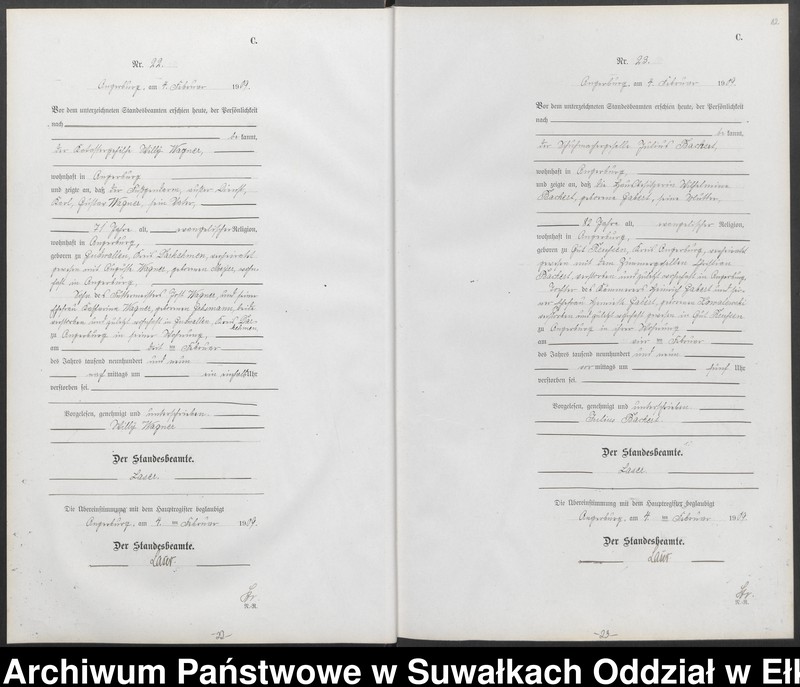 C.
Nr. 22.
Angerburg, am 4. Februar 1909.
Vor dem unterzeichneten Standesbeamten erschien heute, der Persönlichkeit
nach
be kannt,
der Katastergehilfe Willy Wagner,
wohnhaft in Angerburg
und zeigte an, daß der Fußgendarm, außer Dienst,
Karl, Gustav Wagner, sein Vater,
71 Jahre alt, evangelischer Religion,
wohnhaft in Angerburg,
geboren zu Kreis Darkehmen, verheiratet
gewesen mit Auguste Wagner, geborenen wohn-
haft in Angerburg,
Sohn des Wagner und seiner
Ehefrau Katharina Wagner, geborenen beide
verstorben und zuletzt wohnhaft in Kreis Dar-
kehmen,
zu Angerburg in seiner Wohnung,
am drit ten Februar
des Jahres tausend neunhundert und neun
nachmittags um ein einhalb Uhr
verstorben sei.
Vorgelesen, genehmigt und unterschrieben
Willy Wagner
Der Standesbeamte.
Laser.
Die Übereinstimmung mit dem Hauptregister beglaubigt
Angerburg, am 4. ten Februar 1909.
Der Standesbeamte.
Laser.
K.-A.
-22-
82
C.
Nr. 23.
Angerburg, am 4. Februar 1909.
Vor dem unterzeichneten Standesbeamten erschien heute, der Persönlichkeit
nach
be kannt,
der Schuhmachergeselle Julius Backert,
wohnhaft in Angerburg,
und zeigte an, daß die Wilhelmine
Backert, geborene seine Mutter,
82 Jahre alt, evangelischer Religion,
wohnhaft in Angerburg,
geboren zu Gut Kreis Angerburg, verheiratet
gewesen mit dem Zimmergesellen Christian
Backert, verstorben und zuletzt wohnhaft in Angerburg,
Tochter des Kämmerers Heinrich und sei-
ner Ehefrau Henriette geborenen Kowalewski
verstorben und zuletzt wohnhaft gewesen in Gut
zu Angerburg in ihrer Wohnung
am vier ten Februar
des Jahres tausend neunhundert und neun
vormittags um fünf Uhr
verstorben sei.
Vorgelesen, genehmigt und unterschrieben
Julius Backert.
Der Standesbeamte.
Laser.
Die Übereinstimmung mit dem Hauptregister beglaubigt
Angerburg, am 4. ten Februar 1909.
Der Standesbeamte.
Laser
K.-A.
-23-
Archiwum Państwowe w Suwałkach Oddział w Ełk